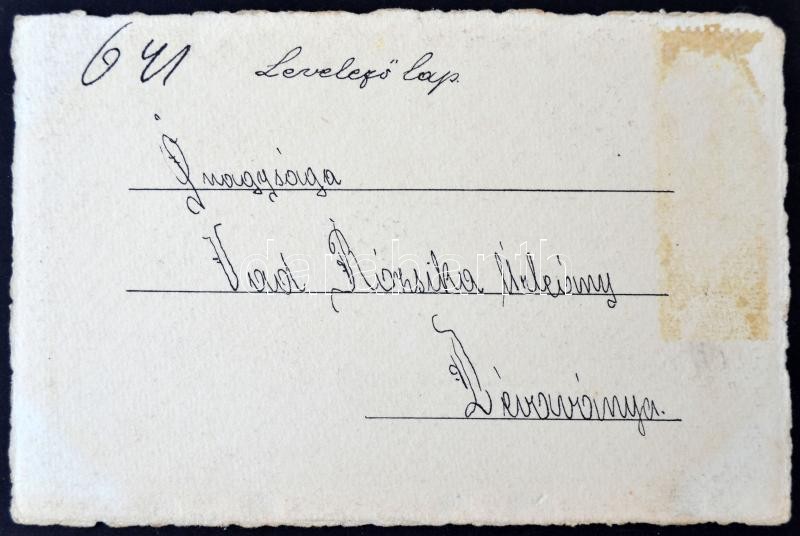 641
Levelező lap.
Őnagysága
Vad Rózsika Úrleány
Dévaványa.
darabanth